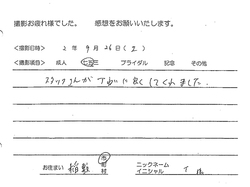 撮影お疲れ様でした。 感想をお願いいたします。
<撮影日時> 2年 9月 26日(土)
<撮影項目> 成人 七五三 ブライダル 記念 その他
スタッフさんが丁ねいに良くしてくれました。
お住まい 稲敷 市 町 村 ニックネーム イニシャル